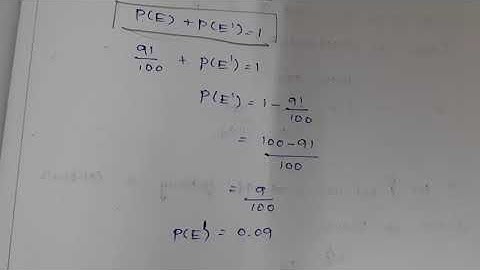 P(E) + P(E') = 1
91/100 + P(E') = 1
P(E') = 1 - 91/100
= 100-91/100
= 9/100
P(E') = 0.09